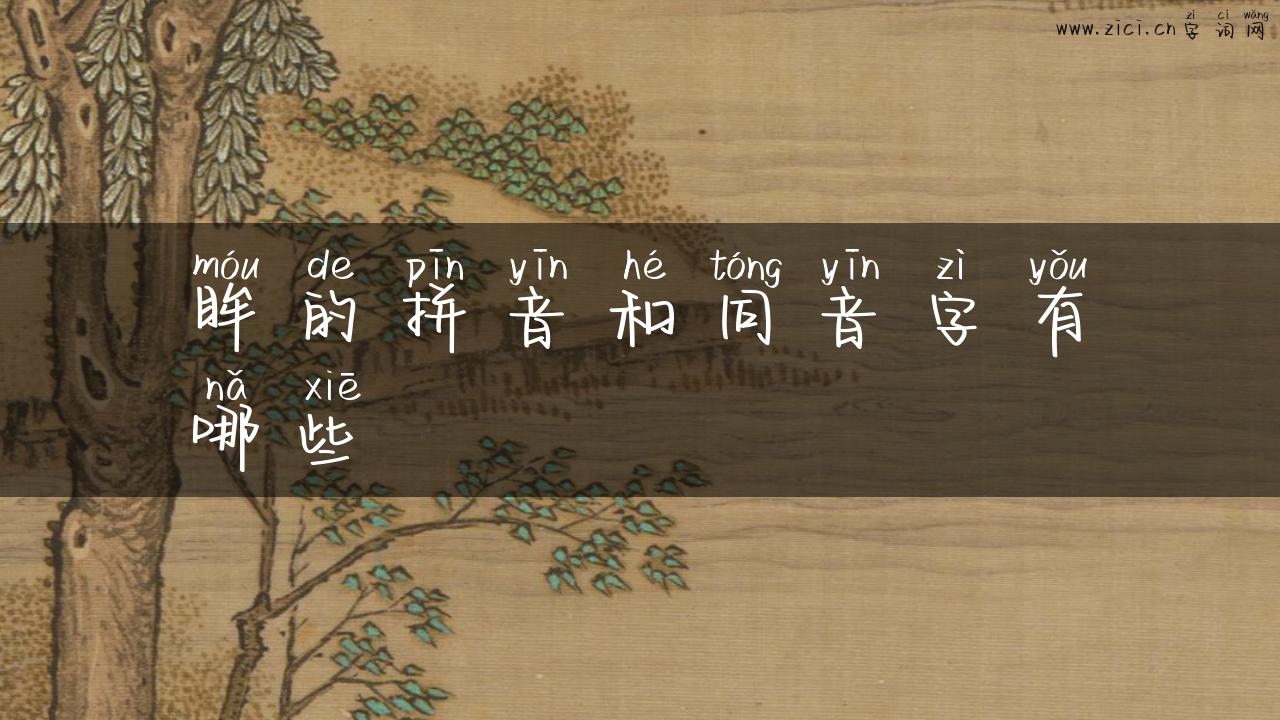 zì cí wǎng
www.zici.cn 字词网
móu de pīn yīn hé tóng yīn zì yǒu
眸的拼音和同音字有
nǎ xiē
哪些